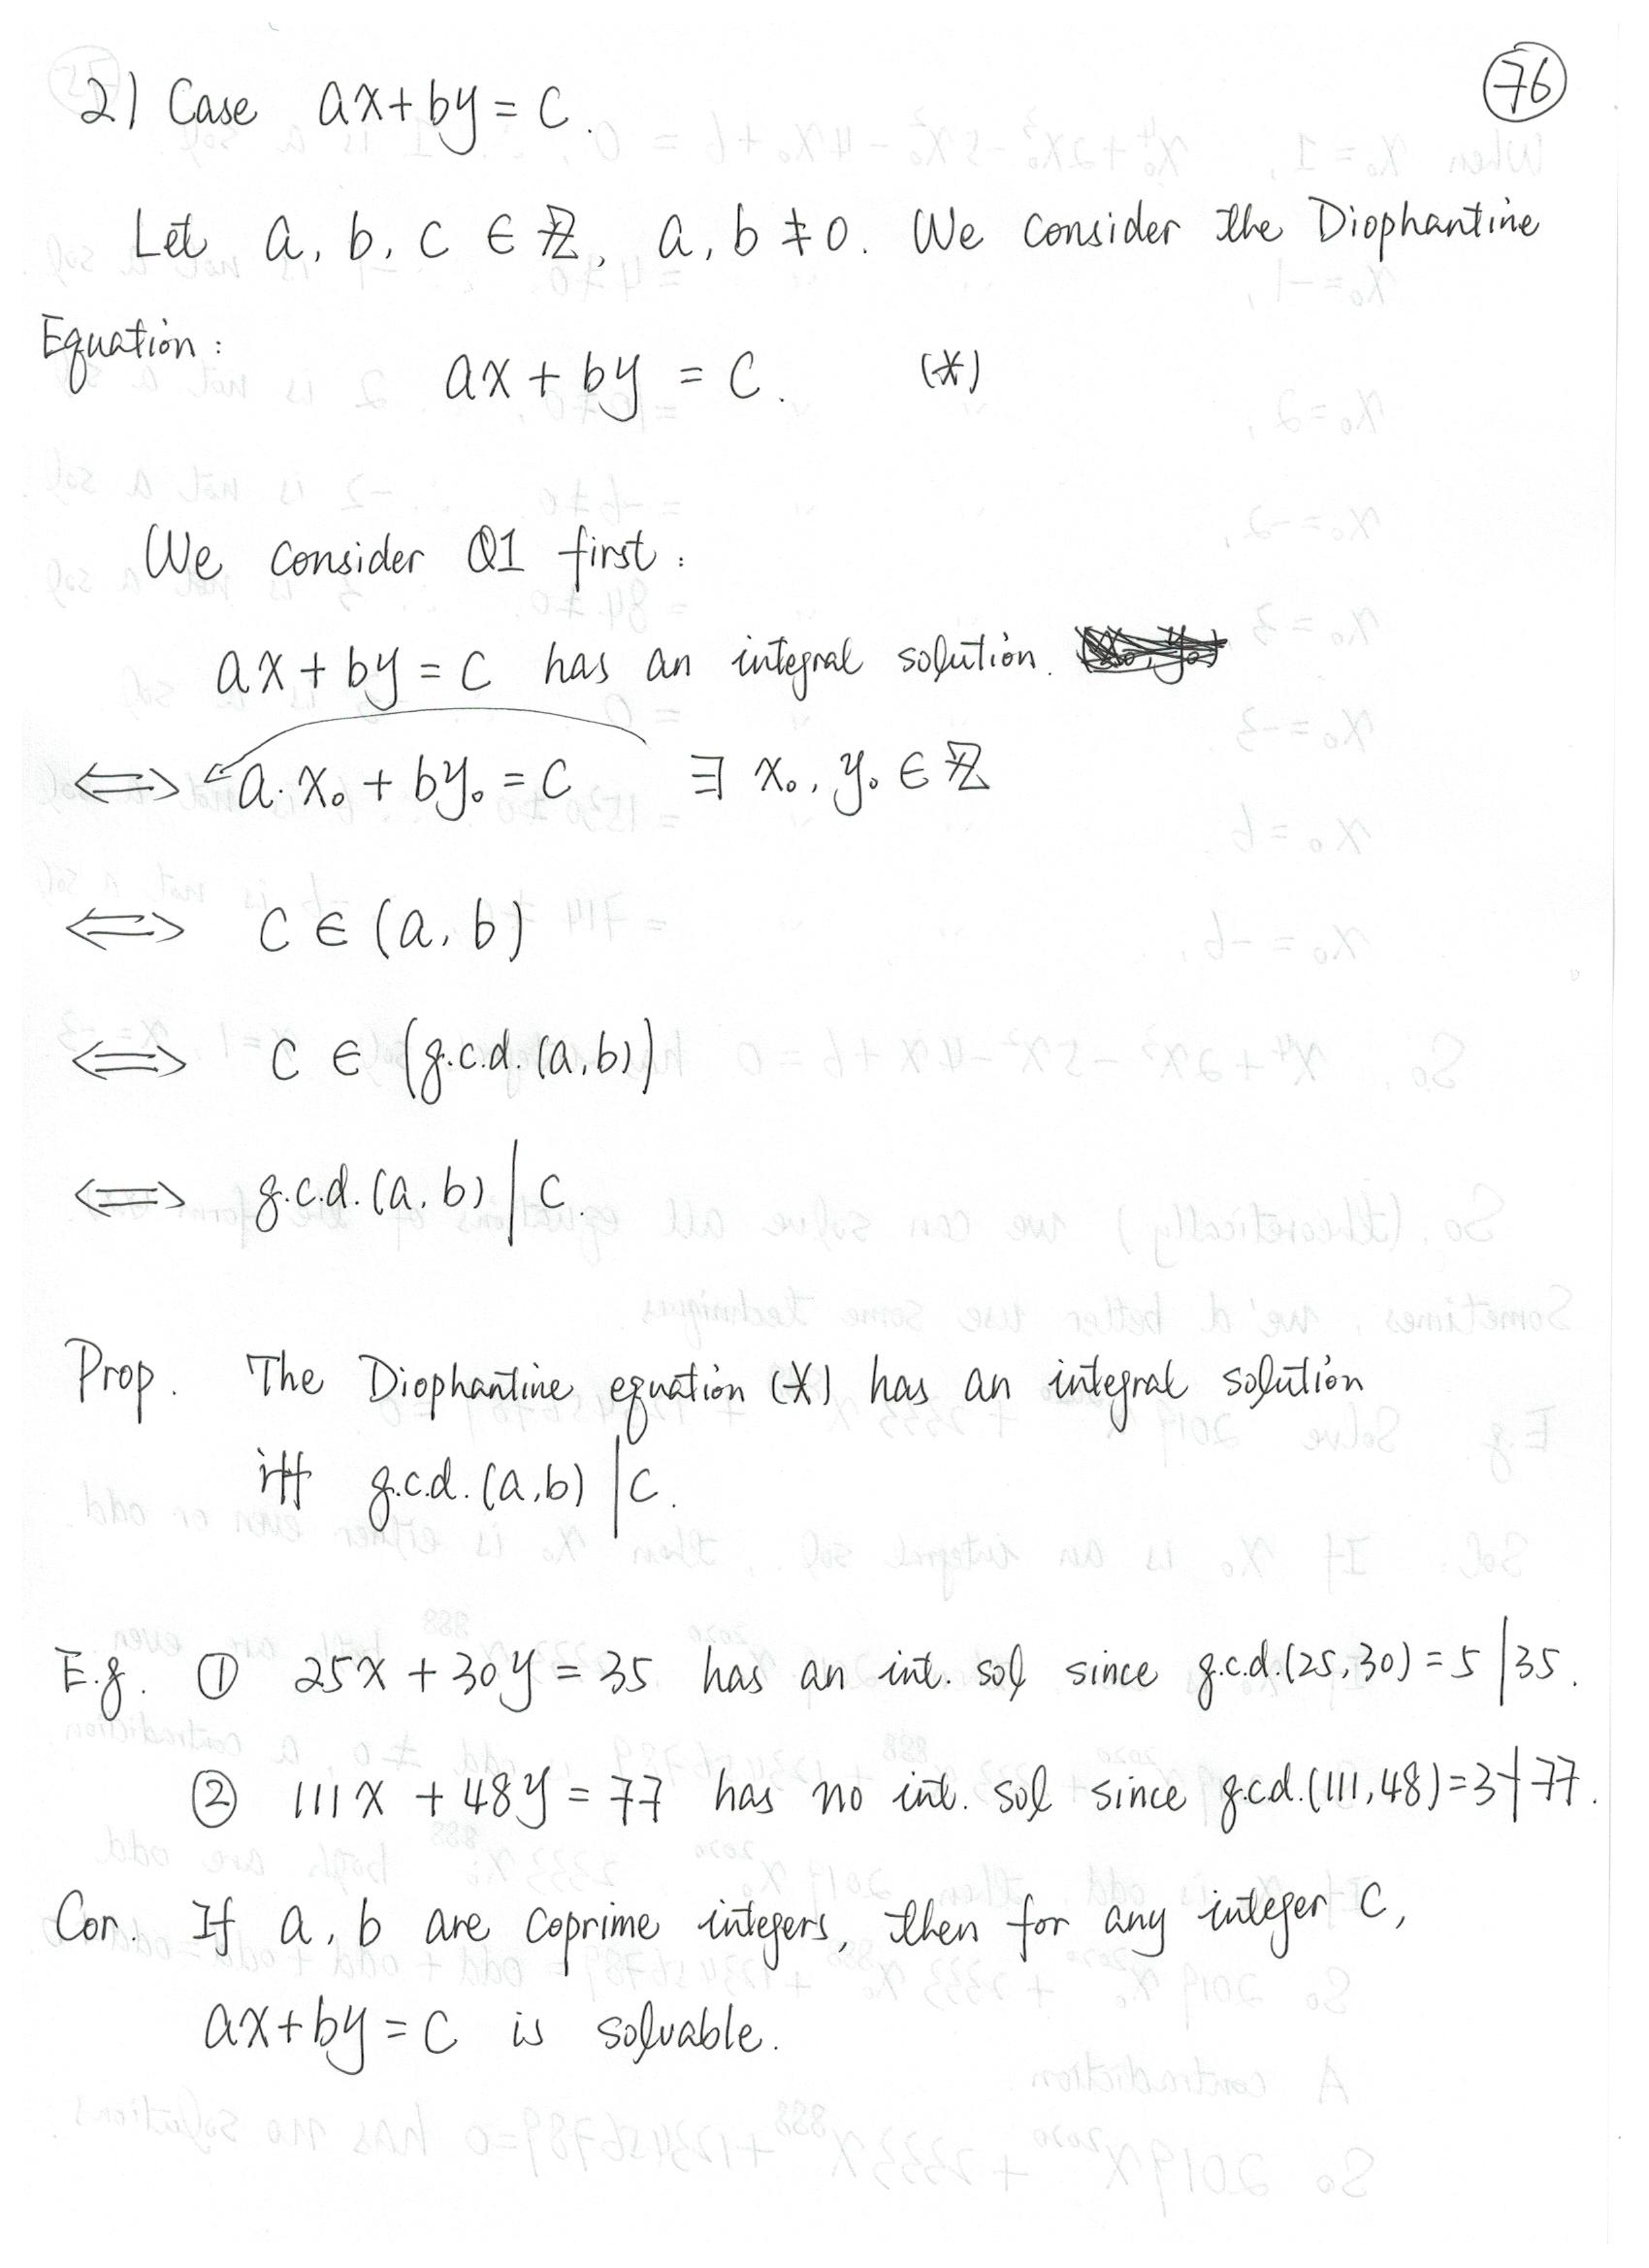 76
2) Case ax+by=C.
Let a, b, c ∈ ℤ, a, b ≠ 0. We consider the Diophantine
Equation:
ax + by = C. (*)
We consider Q1 first:
ax + by = C has an integral solution.
⟺ a·x₀ + by₀ = C ∃ x₀, y₀ ∈ ℤ
⟺ C ∈ (a, b)
⟺ C ∈ (g.c.d. (a,b))
⟺ g.c.d. (a, b) | C.
Prop. The Diophantine equation (*) has an integral solution
iff g.c.d. (a,b) | C.
E.g. ① 25x + 30y = 35 has an int. sol since g.c.d.(25,30) = 5 | 35.
② 111x + 48y = 77 has no int. sol since g.c.d.(111,48)=3∤77.
Cor. If a, b are coprime integers, then for any integer C,
ax+by = C is solvable.